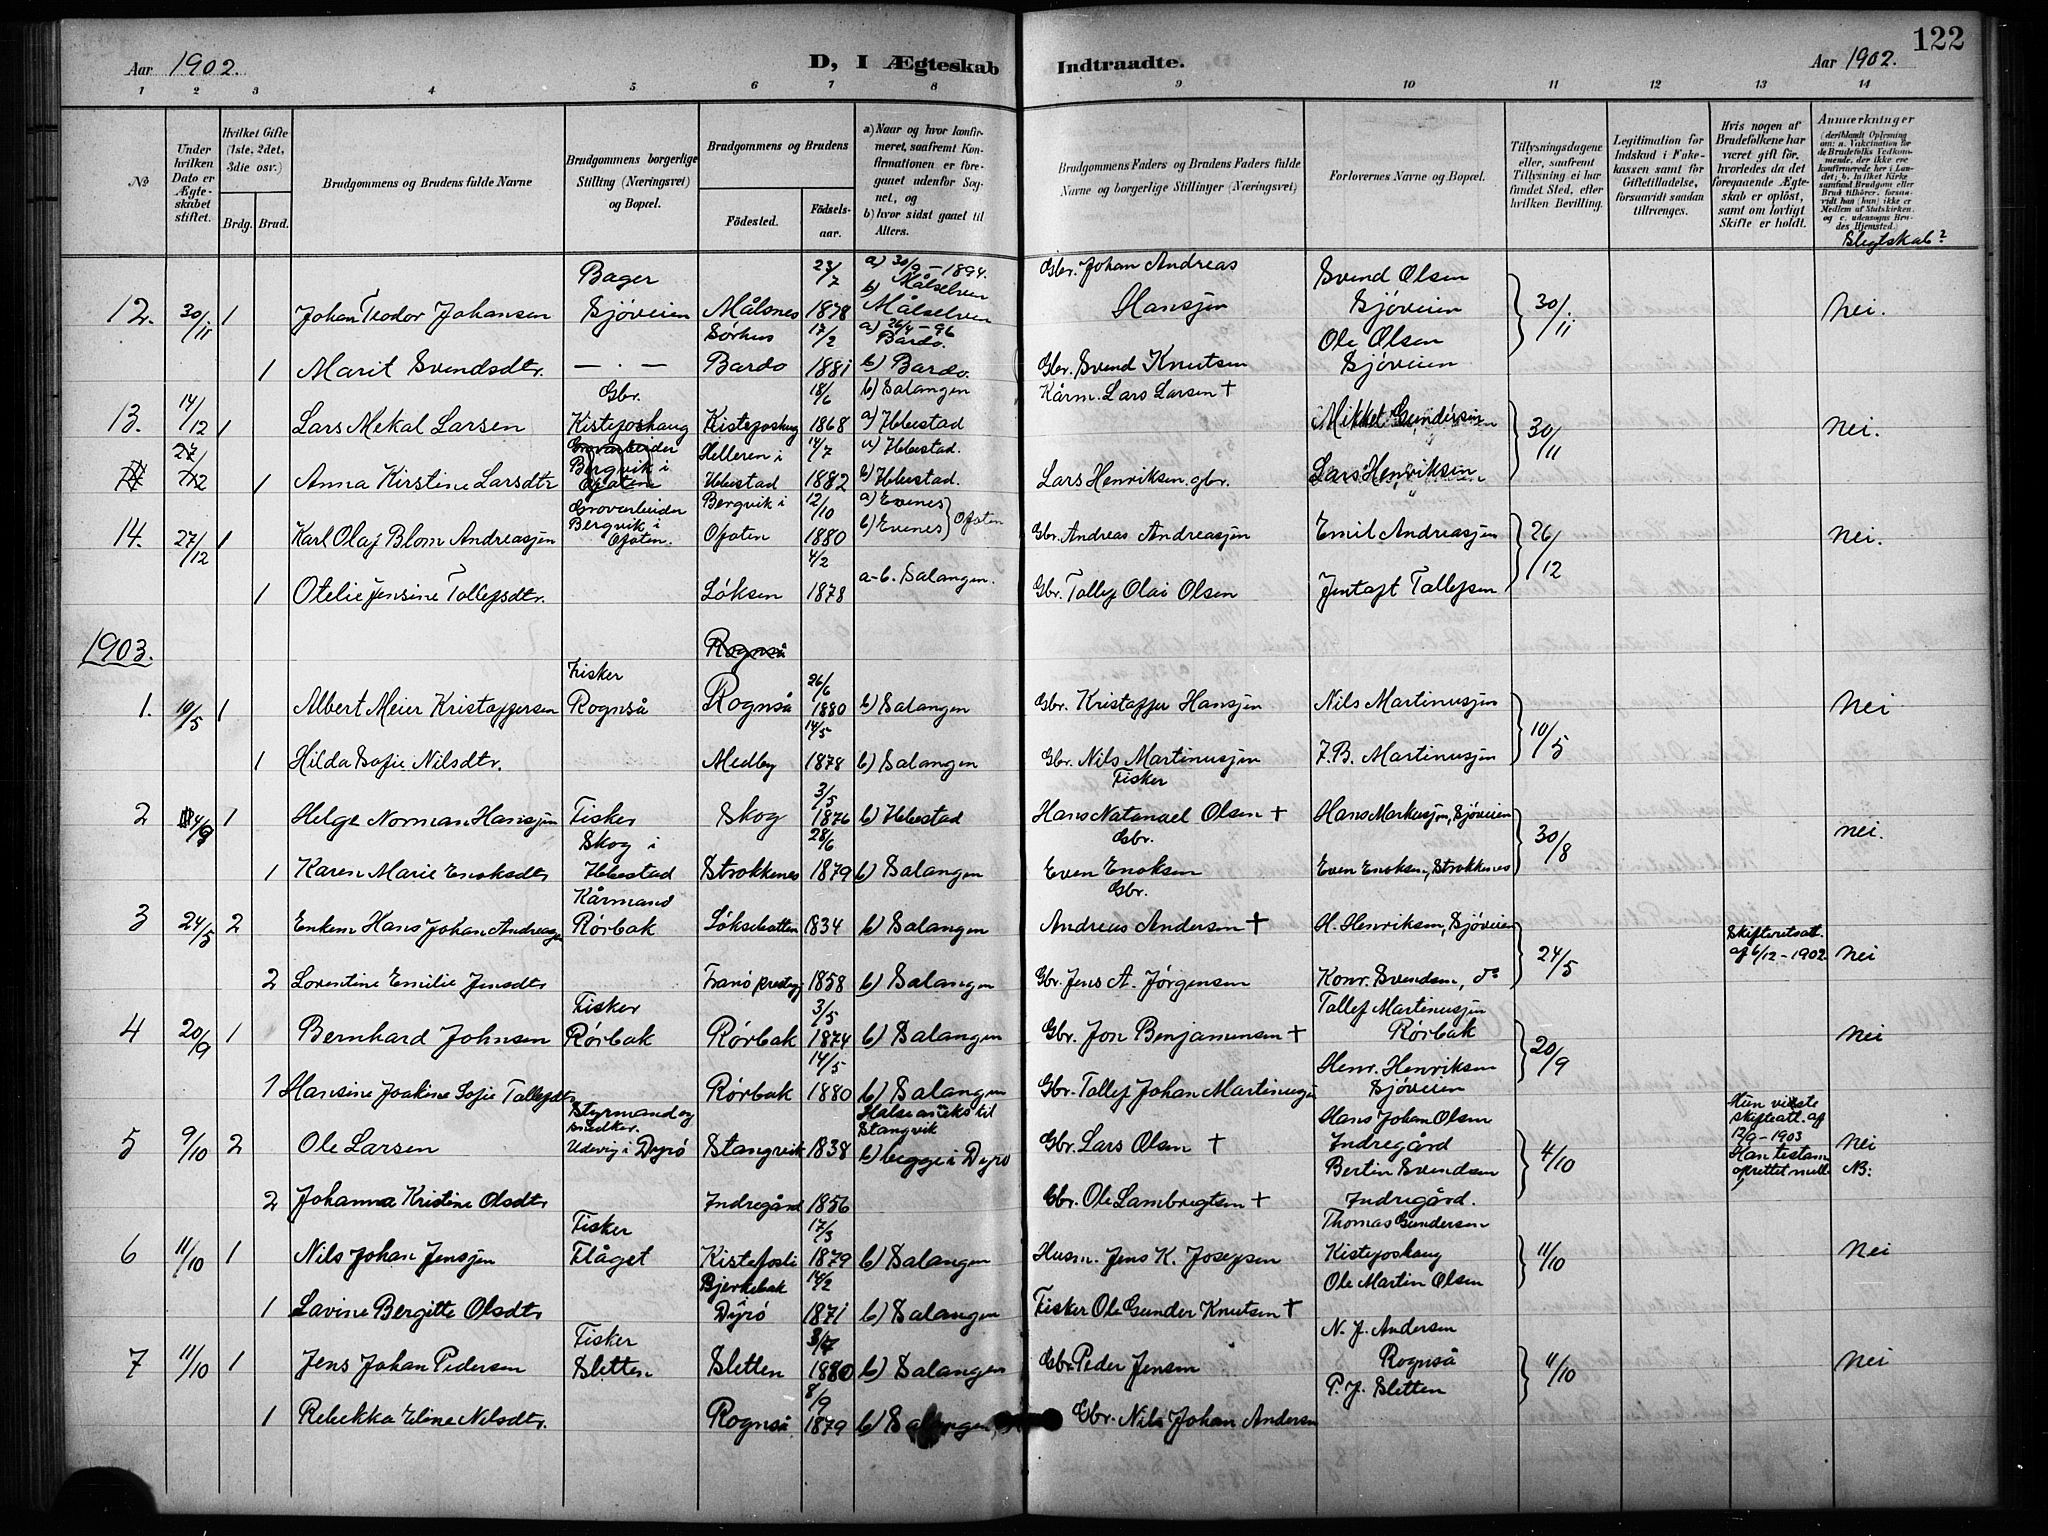 122
Aar 1902.
D, I Ægteskab Indtraadte.
Aar 1902.
1 2 3 4 5 6 7 8 9 10 11 12 13 14
No
Under hvilken Dato er Ægteskabet stiftet.
Hvilket Gifte (1ste, 2det, 3die osv.)
Brdg. Brud.
Brudgommens og Brudens fulde Navne
Brudgommens borgerlige Stilling (Næringsvei) og Bopæl.
Brudgommens og Brudens
Fødested.
Fødselsaar.
a) Naar og hvor konfirmeret, saafremt Konfirmationen er foregaaet udenfor Sognet, og
b) hvor sidst gaaet til Alters.
Brudgommens Faders og Brudens Faders fulde Navne og borgerlige Stillinger (Næringsvei)
Forlovernes Navne og Bopæl.
Tillysningsdagene eller, saafremt Tillysning ei har fundet Sted, efter hvilken Bevilling.
Legitimation for Indskud i Enkekassen samt for Giftetilladelse, forsaavidt saadan tiltrænges.
Hvis nogen af Brudefolkene har været gift før, hvorledes da det foregaaende Ægteskab er opløst, samt om lovligt Skifte er holdt.
Anmærkninger
(deriblandt Oplysning om: a. Vakcination for de Brudefolks Vedkommende, der ikke ere konfirmerede her i Landet; b. In hvilket Kirkesamfund Brudgom eller Brud tilhører, forsaavidt han (hun) ikke er Medlem af Statskirken, og c. udensogns Brudes Hjemsted.)
Slegtskab?
12. 30/11 1 Johan Teodor Johansen Bager Sjøveien Målsnes 23/7 1878 a) 30/9 - 1894. Målselven b) Målselven Gbr. Johan Andreas Hansjen Svend Olsen Sjøveien 30/11 Nei.
1 Marit Svendsdtr. — . — Sørhus Bardo 17/2 1881 a) 26/4 - 96 Bardo. b) Bardo. Gbr. Svend Knutsen Ole Olsen Sjøveien
13. 14/12 1 Lars Mekal Larsen Gbr. Kistefoshaug Kistefoshaug 18/6 1868 b) Salangen a) Ibbestad Kårm. Lars Larsen † Mikkel Gundersen 30/11 Nei.
27/12 1 Anna Kirstine Larsdtr Grovarbeider Bergvik i Ofoten Helleren i Ibbestad 14/7 1882 a) Ibbestad. b) Ibbestad. Lars Henriksen gbr. Lars Henriksen
14. 27/12 1 Karl Olaf Blom Andreasjen Grovarbeider Bergvik i Ofoten. Bergvik i Ofoten 12/10 1880 a) Evenes b) Evenes } Ofoten Gbr. Andreas Andreasjen Emil Andreasjen 26/12 Nei.
1 Otelie Jensine Tollefsdtr. Løksen 4/2 1878 a-b. Salangen. Gbr. Tollef Olai Olsen Jentoft Tollefsen
1903.
Rognså
1. 10/5 1 Albert Meier Kristoffersen Fisker Rognså Rognså 26/6 1880 b) Salangen Gbr. Kristoffer Hansjen Nils Martinusjen 10/5 Nei
1 Hilda Sofie Nilsdtr. Medby 14/5 1878 b) Salangen Gbr. Nils Martinusjen J. B. Martinusjen
2 4/9 1 Helge Norman Hansjen Fisker Skog i Ibbestad Skog 3/5 1876 b) Ibbestad Fisker Hans Natanael Olsen † Hans Markusjen, Sjøveien 30/8 Nei.
1 Karen Marie Enoksdtr Strokkenes 28/6 1879 b) Salangen Gbr. Even Enoksen Even Enoksen, Strokkenes
3 24/5 2 Enkem Hans Johan Andreasjen Kårmand Rørbak Løksebotten 1834 b) Salangen Gbr. Andreas Andersen † H. Henriksen, Sjøveien 24/5 Skifteretsatt. af 6/12 - 1902 Nei
2 Lorentine Emilie Jensdtr Tranø prestegj 1858 b) Salangen Gbr. Jens A. Jørgensen Konr. Svendsen, do
4 20/9 1 Bernhard Johnsen Fisker Rørbak Rørbak 3/5 1874 b) Salangen Gbr. Jon Benjamensen † Tollef Martinusjen Rørbak 20/9 Nei
1 Hansine Joakine Sofie Tollefsdtr Rørbak 14/5 1880 b) Salangen Gbr. Tollef Johan Martinusjen Henr. Henriksen Sjøveien
5 9/10 2 Ole Larsen Styrmand og snedker. Udevig i Dyrø Stangvik 1838 Halse aneks til Stangvik b) begge i Dyrø Gbr. Lars Olsen † Hans Johan Olsen Indregård 4/10 Hun viste skifteatt. af 12/9 - 1903 Han testam. oprettet mell. Nei NB:
2 Johanna Kristine Olsdtr Indregård 1856 Gbr. Ole Lambregtsen † Bertin Svendsen Indregård.
6 11/10 1 Nils Johan Jensjen Fisker Flåget Kistefosli 17/3 1879 b) Salangen Husm. Jens K. Josefsen Thomas Gundersen Kistefoshaug 11/10 Nei
1 Lavine Bergitte Olsdtr Bjerkebak Dyrø 14/2 1871 b) Salangen Fisker Ole Gunder Knutsen † Ole Martin Olsen
7 11/10 1 Jens Johan Pedersen Fisker Sletten Sletten 1880 b) Salangen Gbr. Peder Jensen N. J. Andersen Rognså 11/10 Nei
1 Rebekka Eline Nilsdtr. Rognså 8/9 1879 b) Salangen Gbr. Nils Johan Andersen P. J. Sletten